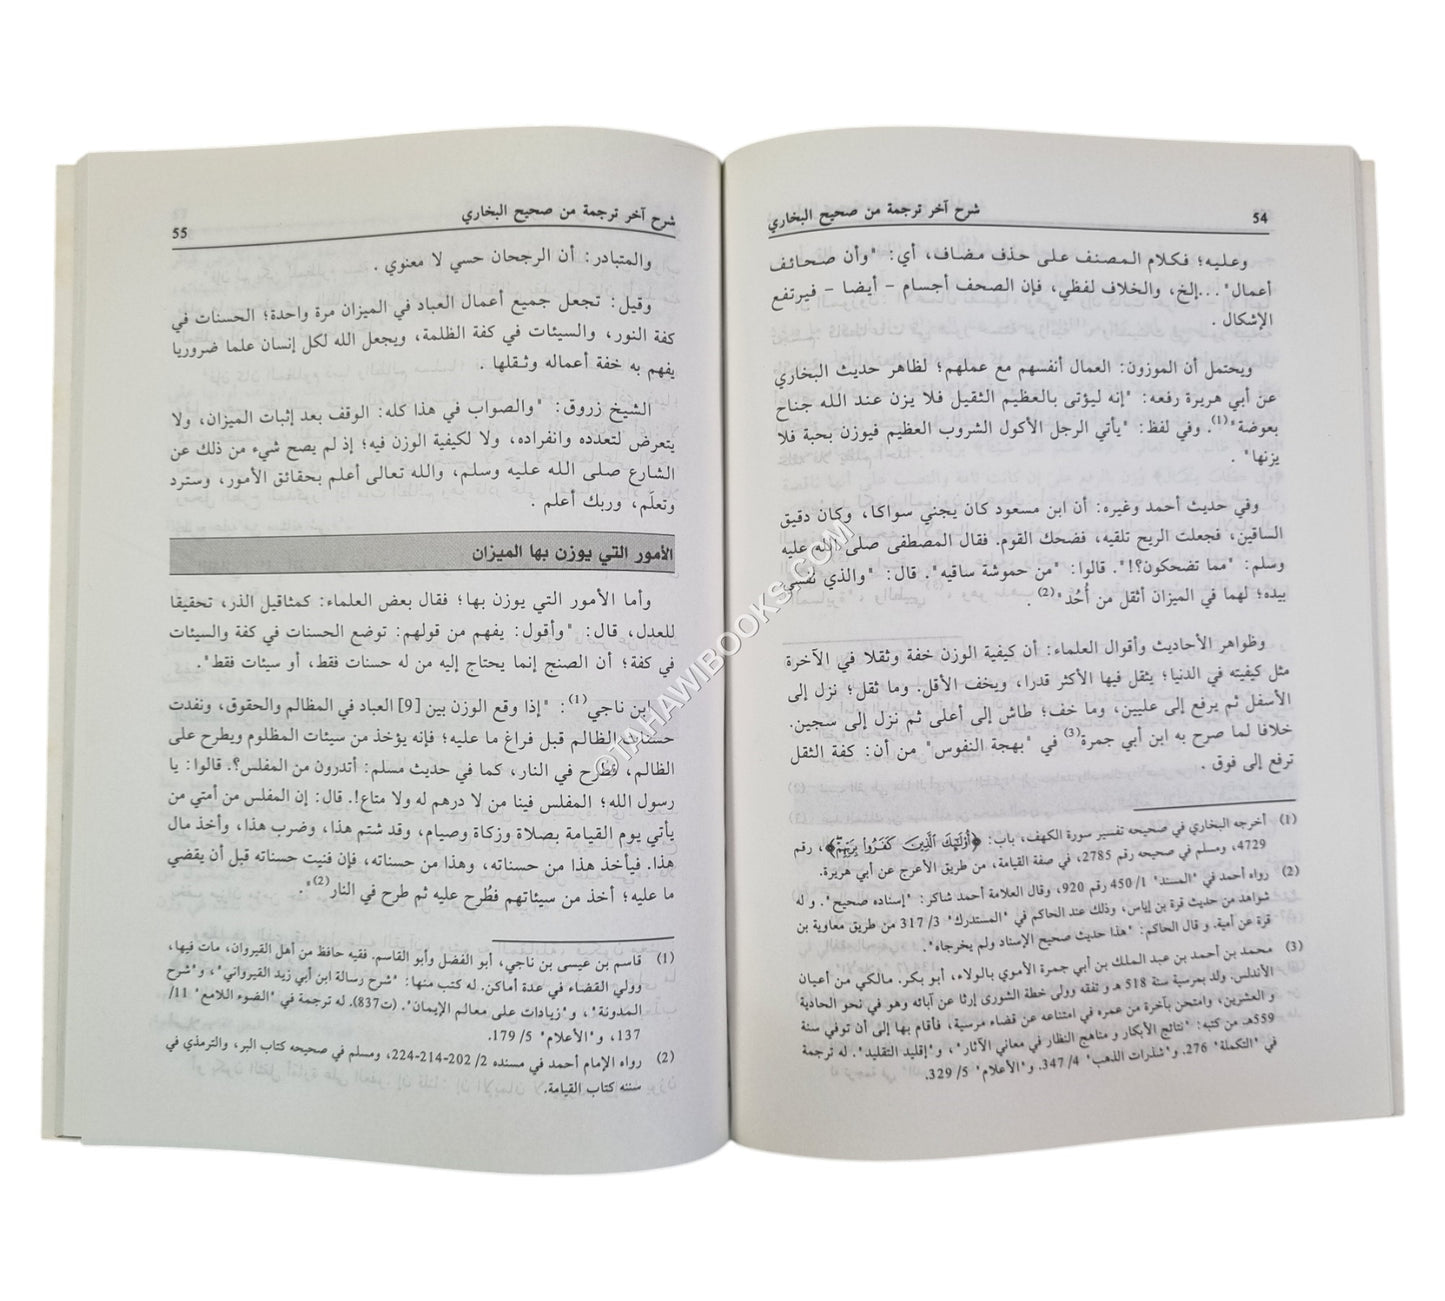 54
شرح آخر ترجمة من صحيح البخاري
وعليه؛ فكلام المصنف على حذف مضاف، أي: "وأن صحائف
أعمال"...إلخ، والخلاف لفظي، فإن الصحف أجسام - أيضا - فيرتفع
الإشكال .
ويحتمل أن الموزون: العمال أنفسهم مع عملهم؛ لظاهر حديث البخاري
عن أبي هريرة رفعه: "إنه ليؤتى بالعظيم الثقيل فلا يزن عند الله جناح
بعوضة"(1). وفي لفظ: "يأتي الرجل الأكول الشروب العظيم فيوزن بحبة فلا
يزنها" .
وفي حديث أحمد وغيره: أن ابن مسعود كان يجني سواكا، وكان دقيق
الساقين، فجعلت الريح تلقيه، فضحك القوم. فقال المصطفى صلى الله عليه
وسلم: "مما تضحكون؟!". قالوا: "من حموشة ساقيه". قال: "والذي نفسي
بيده؛ لهما في الميزان أثقل من أُحُد"(2) .
وظواهر الأحاديث وأقوال العلماء: أن كيفية الوزن خفة وثقلا في الآخرة
مثل كيفيته في الدنيا؛ يثقل فيها الأكثر قدرا، ويخف الأقل. وما ثقل؛ نزل إلى
الأسفل ثم يرفع إلى عليين، وما خف؛ طاش إلى أعلى ثم نزل إلى سجين.
خلافا لما صرح به ابن أبي جمرة(3) في "بهجة النفوس" من أن: كفة الثقل
ترفع إلى فوق .
(1) أخرجه البخاري في صحيحه تفسير سورة الكهف، باب: ﴿أُوْلَٰٓئِكَ ٱلَّذِينَ كَفَرُواْ بِرَبِّهِمْ﴾، رقم
4729، ومسلم في صحيحه رقم 2785، في صفة القيامة، من طريق الأعرج عن أبي هريرة.
(2) رواه أحمد في "المسند" 1/ 450 رقم 920، وقال العلامة أحمد شاكر: "إسناده صحيح". و له
شواهد من حديث قرة بن إياس، وذلك عند الحاكم في "المستدرك" 3/ 317 من طريق معاوية بن
قرة عن أمية. و قال الحاكم: "هذا حديث صحيح الإسناد ولم يخرجاه".
(3) محمد بن أحمد بن عبد الملك بن أبي جمرة الأموي بالولاء، أبو بكر. مالكي من أعيان
الأندلس. ولد بمرسية سنة 518 هـ و تفقه وولى خطة الشورى إرثا عن آبائه وهو في نحو الحادية
و العشرين، وامتحن بآخرة من عمره في امتناعه عن قضاء مرسية، فأقام بها إلى أن توفي سنة
559هـ من كتبه: "نتائج الأبكار و مناهج النظار في معاني الآثار"، و"إقليد التقليد". له ترجمة
في "التكملة" 276. و"شذرات الذهب" 4/ 347. و"الأعلام" 5/ 329.
شرح آخر ترجمة من صحيح البخاري
55
والمتبادر: أن الرجحان حسي لا معنوي .
وقيل: تجعل جميع أعمال العباد في الميزان مرة واحدة؛ الحسنات في
كفة النور، والسيئات في كفة الظلمة، ويجعل الله لكل إنسان علما ضروريا
يفهم به خفة أعماله وثقلها .
الشيخ زروق: "والصواب في هذا كله: الوقف بعد إثبات الميزان، ولا
يتعرض لتعدده وانفراده، ولا لكيفية الوزن فيه؛ إذ لم يصح شيء من ذلك عن
الشارع صلى الله عليه وسلم، والله تعالى أعلم بحقائق الأمور، وسترد
وتعلّم، وربك أعلم .
الأمور التي يوزن بها الميزان
وأما الأمور التي يوزن بها؛ فقال بعض العلماء: كمثاقيل الذر، تحقيقا
للعدل، قال: "وأقول: يفهم من قولهم: توضع الحسنات في كفة والسيئات
في كفة؛ أن الصنج إنما يحتاج إليه من له حسنات فقط، أو سيئات فقط".
ابن ناجي(1): "إذا وقع الوزن بين [9] العباد في المظالم والحقوق، ونفدت
حسنات الظالم قبل فراغ ما عليه؛ فإنه يؤخذ من سيئات المظلوم ويطرح على
الظالم، فطُرح في النار، كما في حديث مسلم: أتدرون من المفلس؟. قالوا: يا
رسول الله؛ المفلس فينا من لا درهم له ولا متاع!. قال: إن المفلس من أمتي من
يأتي يوم القيامة بصلاة وزكاة وصيام، وقد شتم هذا، وضرب هذا، وأخذ مال
هذا. فيأخذ هذا من حسناته، وهذا من حسناته، فإن فنيت حسناته قبل أن يقضي
ما عليه؛ أخذ من سيئاتهم فطُرح عليه ثم طرح في النار(2)".
(1) قاسم بن عيسى بن ناجي، أبو الفضل وأبو القاسم. فقيه حافظ من أهل القيروان، مات فيها،
وولي القضاء في عدة أماكن. له كتب منها: "شرح رسالة ابن أبي زيد القيرواني"، و"شرح
المدونة"، و"زيادات على معالم الإيمان". (ت837). له ترجمة في "الضوء اللامع" 11/
137، و"الأعلام" 5/ 179.
(2) رواه الإمام أحمد في مسنده 2/ 202-214-224، ومسلم في صحيحه كتاب البر، والترمذي في
سننه كتاب القيامة.
©TAHAWIBOOKS.COM